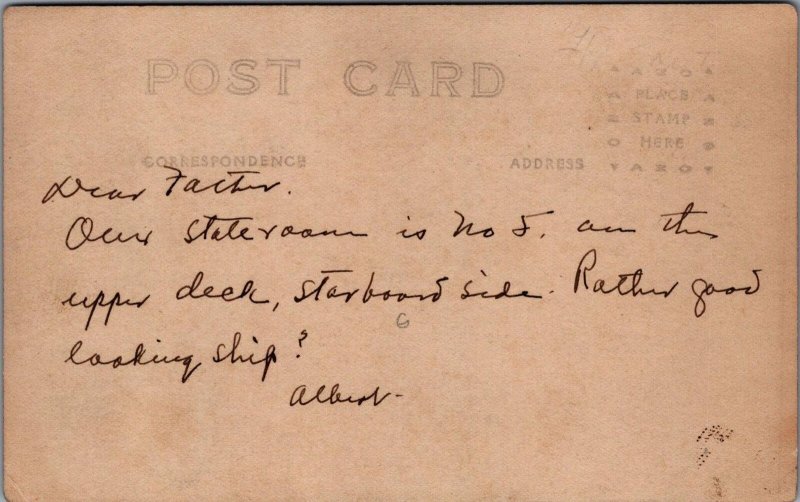 POST CARD
AZO
PLACE
STAMP
HERE
AZO
CORRESPONDENCE
ADDRESS
Dear Father.
Our stateroom is No 5. on the
upper deck, starboard side. Rather good
looking ship?
6
Albert-